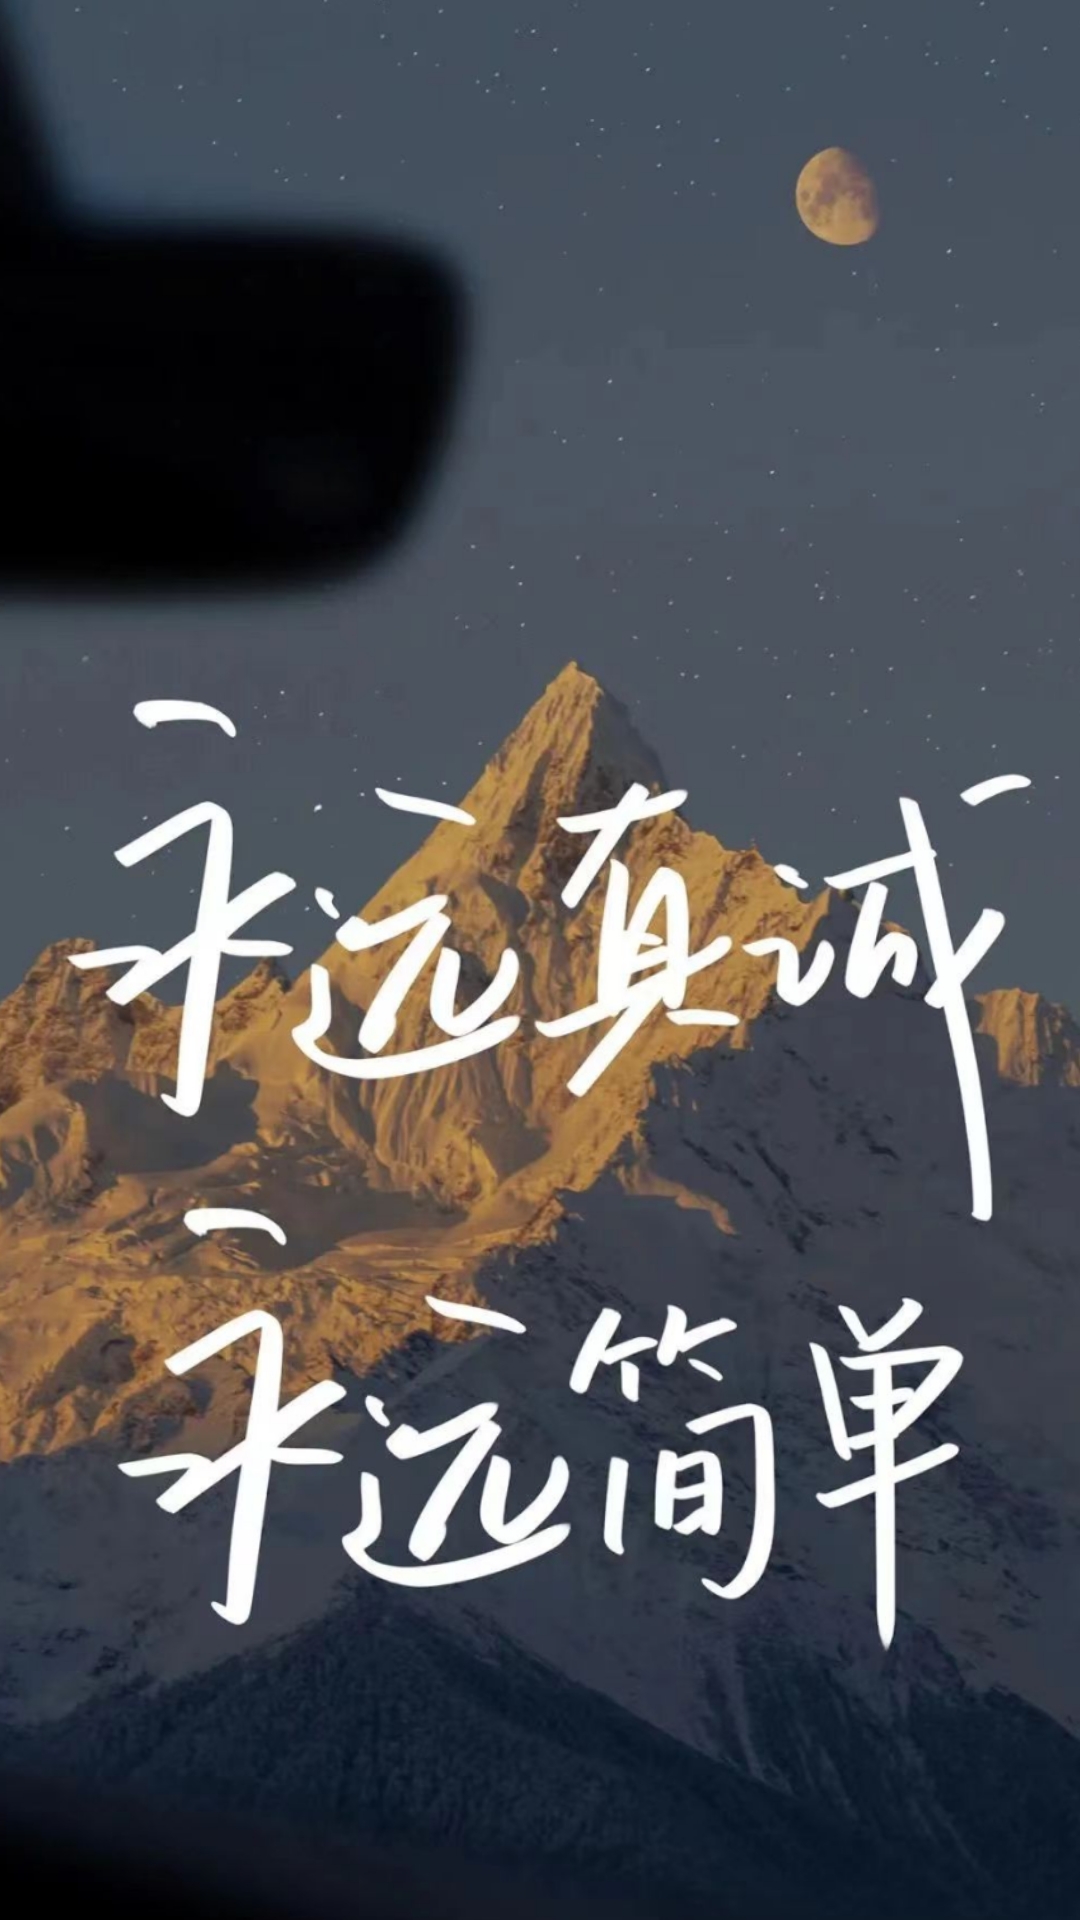 永远真诚
永远简单